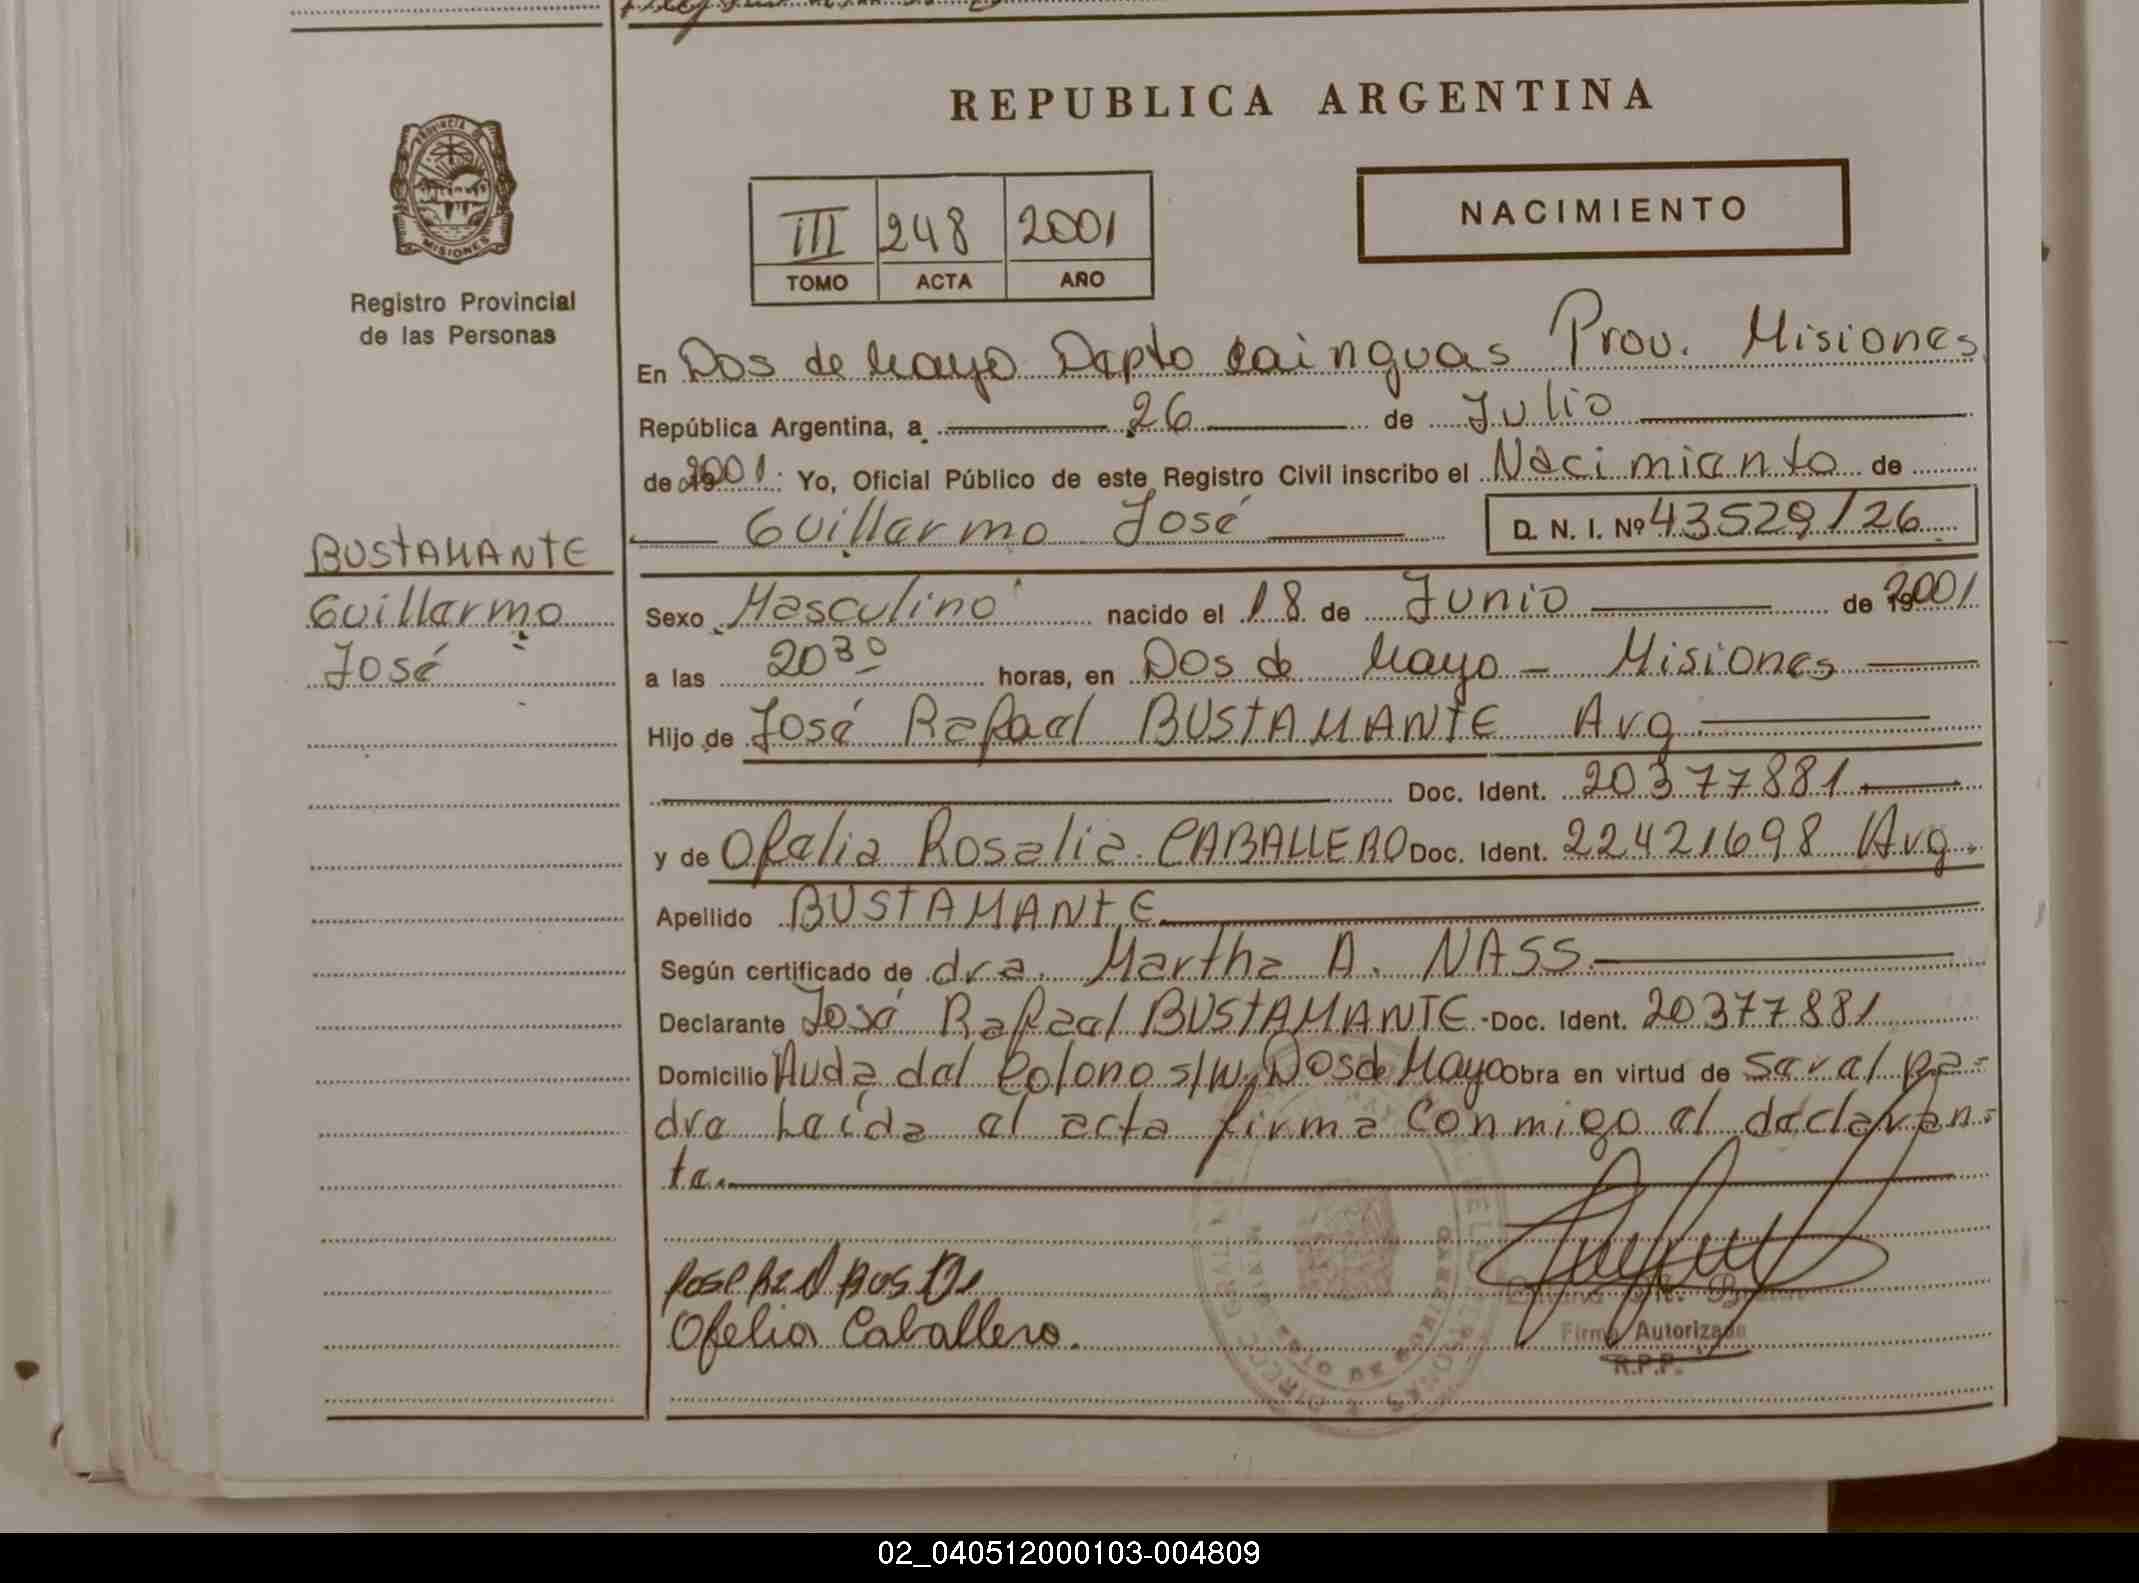 REPUBLICA ARGENTINA
PROVINCIA DE
MISIONES
Registro Provincial
de las Personas
III 248 2001
TOMO ACTA AÑO
NACIMIENTO
En Dos de Mayo Depto Cainguas Prov. Misiones
República Argentina, a 26 de Julio
de 2001 : Yo, Oficial Público de este Registro Civil inscribo el Nacimiento de
Guillermo José D. N. I. Nº 43529126
BUSTAMANTE
Guillermo
José
Sexo Masculino nacido el 18 de Junio de 2001
a las 20 30 horas, en Dos de Mayo - Misiones
Hijo de José Rafael BUSTAMANTE Arg
Doc. Ident. 20377881
y de Ofelia Rosalia CABALLERO Doc. Ident. 22421698 Arg.
Apellido BUSTAMANTE
Según certificado de dra. Martha A. NASS
Declarante José Rafael BUSTAMANTE - Doc. Ident. 20377881
Domicilio Avda del Colono s/n, Dos de Mayo Obra en virtud de ser el pa-
dre Leída el acta firma conmigo el declaran-
te.
Ofelia Caballero.
Firma Autorizada
R.P.P.
02_040512000103-004809